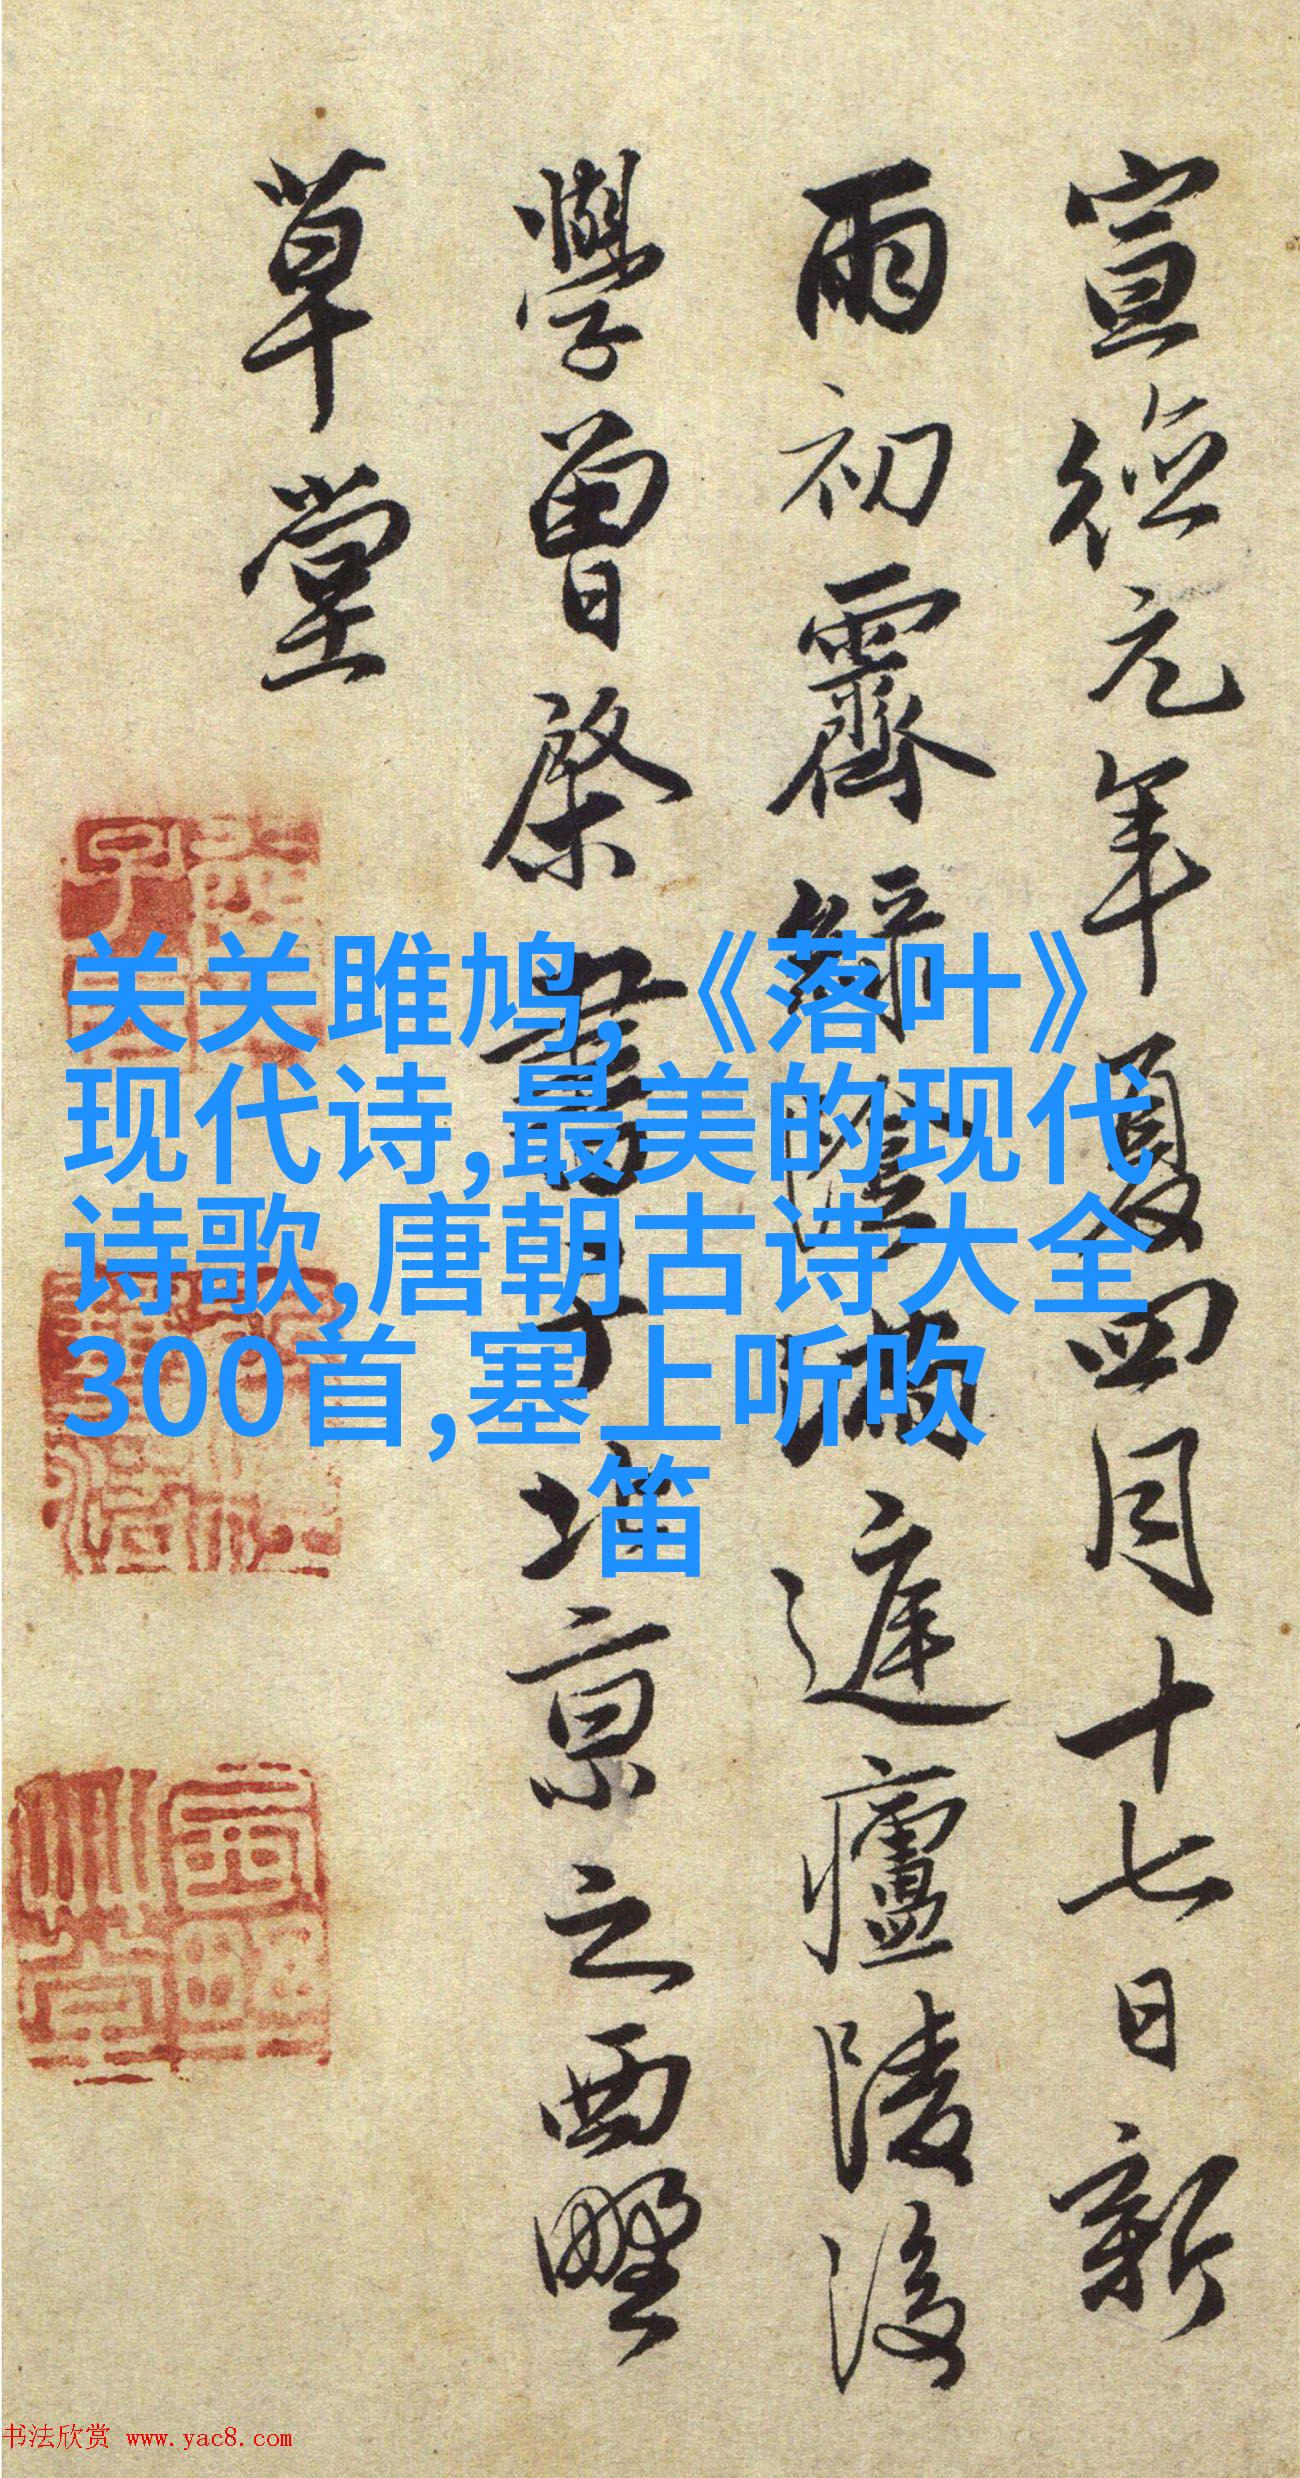 宣德元年夏四月十七日新
雨初霽綠陰滿庭廬陵後
學曾棨書于北京之西墅
草堂
关关雎鸠,《落叶》
现代诗,最美的现代
诗歌,唐朝古诗大全
300首,塞上听吹
笛
书法欣赏 www.yac8.com